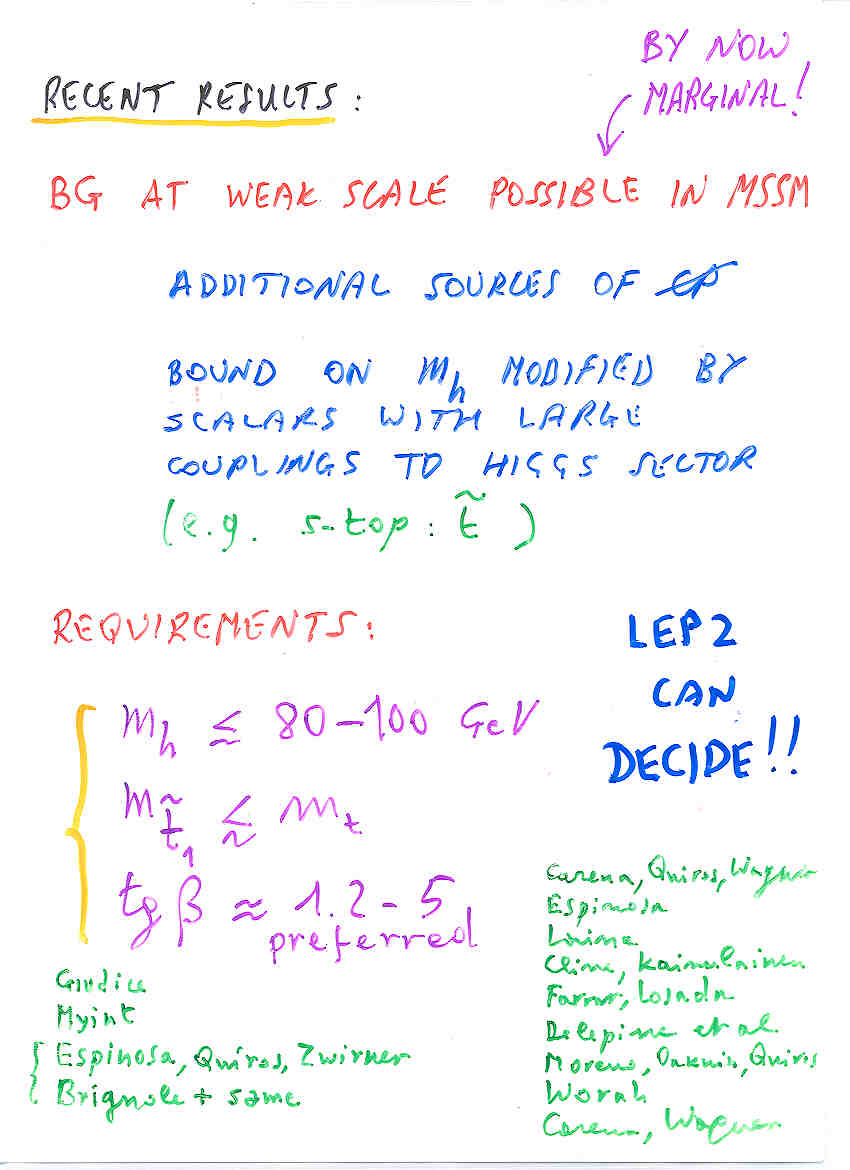 BY NOW
MARGINAL!
RECENT RESULTS:
BG AT WEAK SCALE POSSIBLE IN MSSM
ADDITIONAL SOURCES OF C̸P̸
BOUND ON m_h MODIFIED BY
SCALARS WITH LARGE
COUPLINGS TO HIGGS SECTOR
(e.g. s-top: t̃)
REQUIREMENTS:
LEP2
CAN
DECIDE!!
m_h ≲ 80-100 GeV
m_t̃₁ ≲ m_t
tg β ≈ 1.2-5
preferred
Giudice
Myint
Espinosa, Quirós, Zwirner
Brignole + same
Carena, Quiros, Wagner
Espinosa
Laine
Cline, Kainulainen
Farrar, Losada
Delepine et al.
Moreno, Oaknin, Quiros
Worah
Carena, Wagner